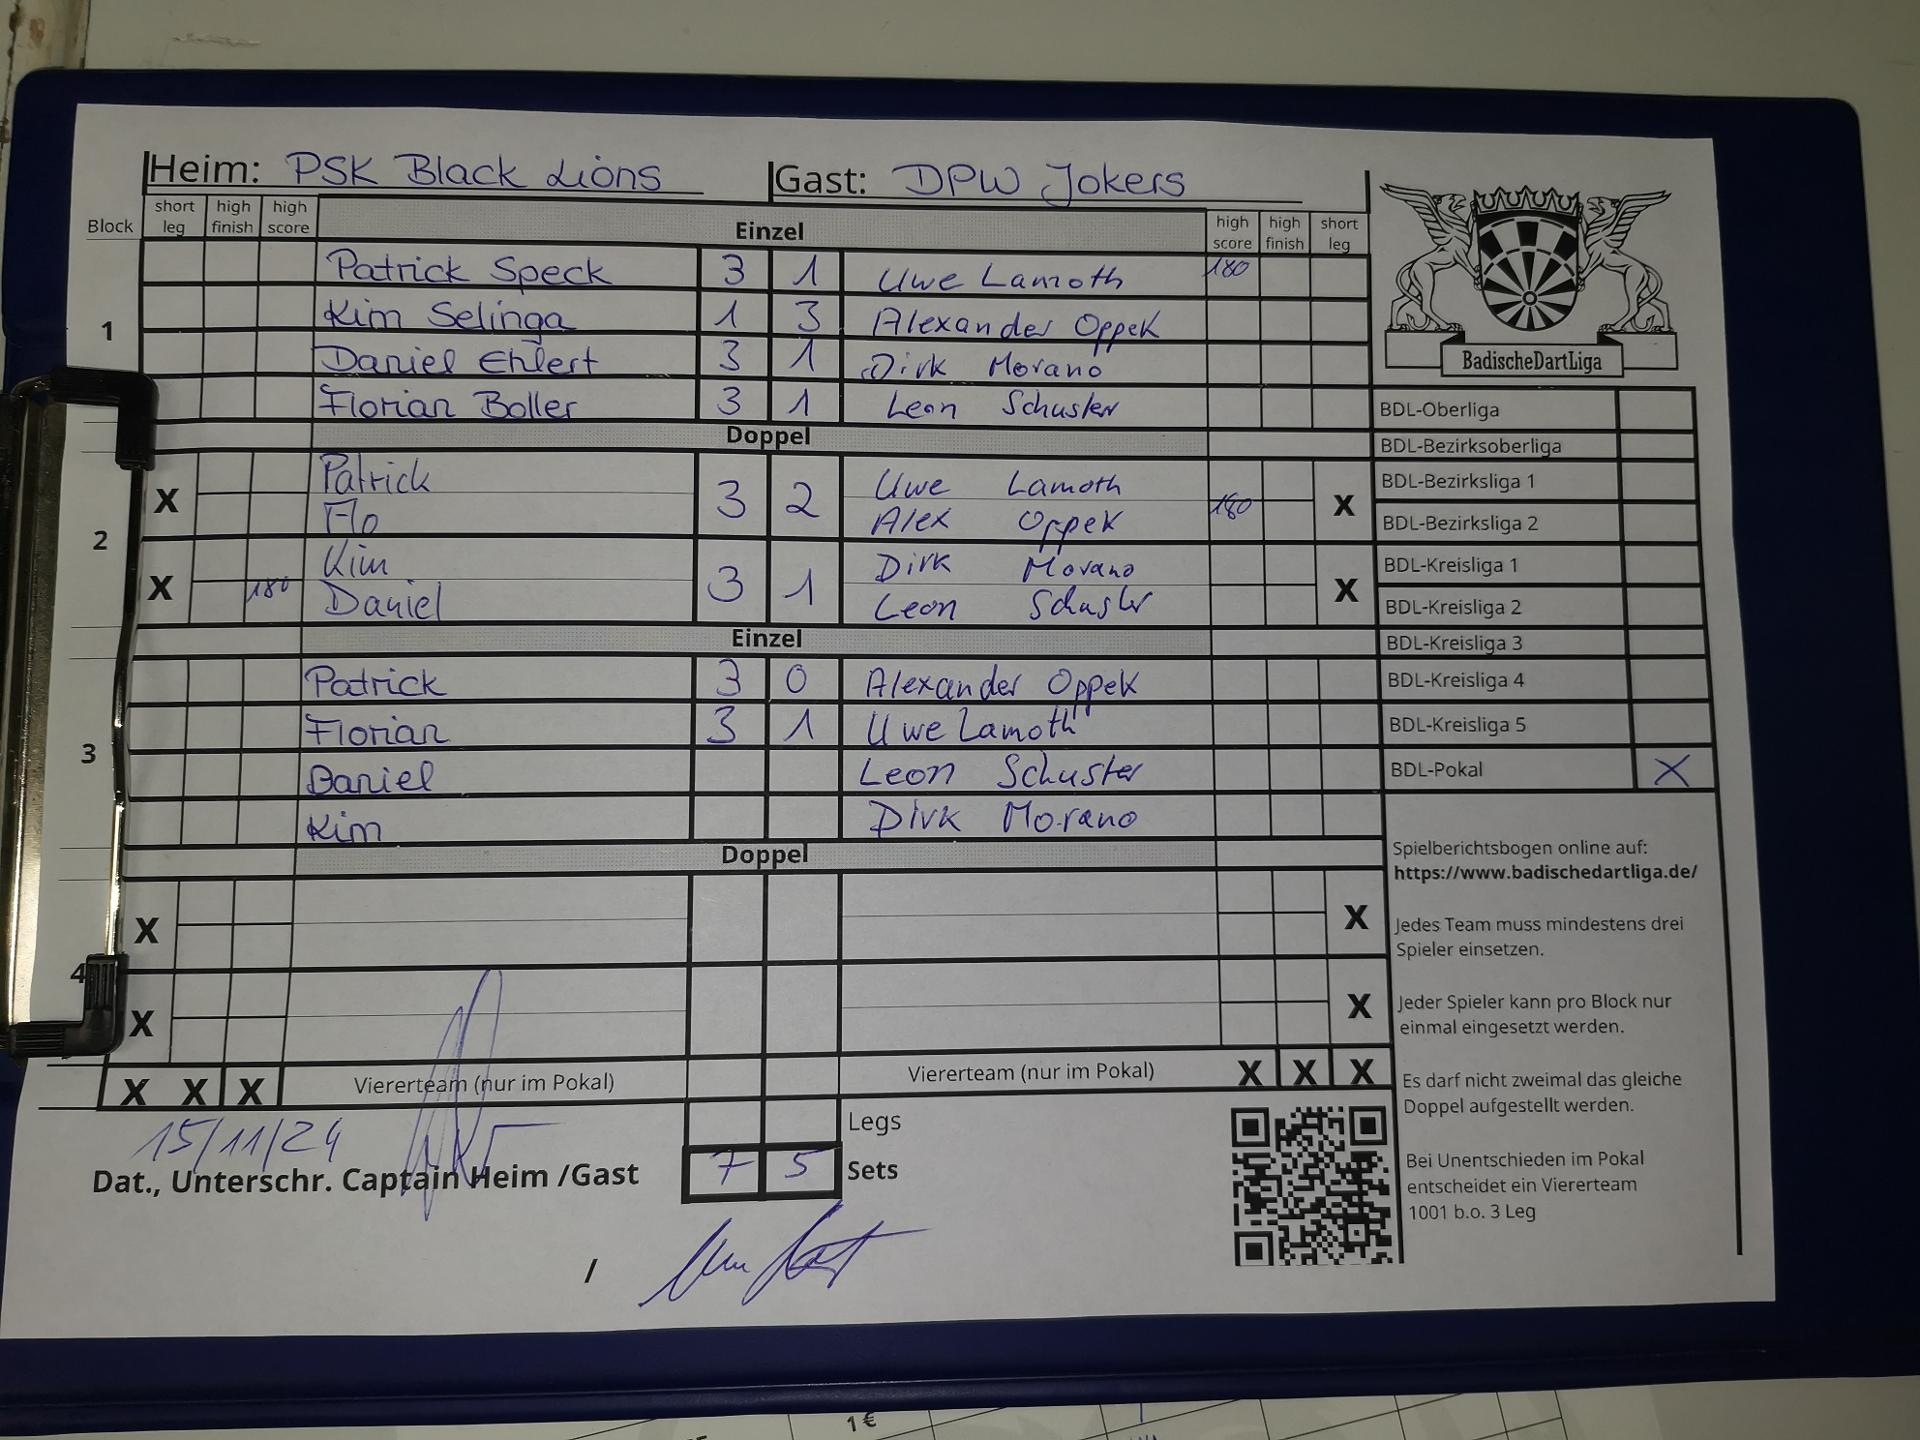 Heim: PSK Black Lions Gast: DPW Jokers
Block short leg high finish high score Einzel high score high finish short leg
Patrick Speck 3 1 Uwe Lamoth 180
1 Kim Selinga 1 3 Alexander Oppek
Daniel Ehlert 3 1 Dirk Morano
Florian Boller 3 1 Leon Schuster
Doppel
Patrick Uwe Lamoth
X 3 2 180 X
Flo Alex Oppek
2
Kim Dirk Morano
X 180 3 1 X
Daniel Leon Schuster
Einzel
Patrick 3 0 Alexander Oppek
Florian 3 1 Uwe Lamoth
3
Daniel Leon Schuster
Kim Dirk Morano
Doppel
X X
4
X X
X X X Viererteam (nur im Pokal) Viererteam (nur im Pokal) X X X
15/11/24 Legs
Dat., Unterschr. Captain Heim /Gast 7 5 Sets
/
BadischeDartLiga
BDL-Oberliga
BDL-Bezirksoberliga
BDL-Bezirksliga 1
BDL-Bezirksliga 2
BDL-Kreisliga 1
BDL-Kreisliga 2
BDL-Kreisliga 3
BDL-Kreisliga 4
BDL-Kreisliga 5
BDL-Pokal X
Spielberichtsbogen online auf:
https://www.badischedartliga.de/
Jedes Team muss mindestens drei
Spieler einsetzen.
Jeder Spieler kann pro Block nur
einmal eingesetzt werden.
Es darf nicht zweimal das gleiche
Doppel aufgestellt werden.
Bei Unentschieden im Pokal
entscheidet ein Viererteam
1001 b.o. 3 Leg
1 €